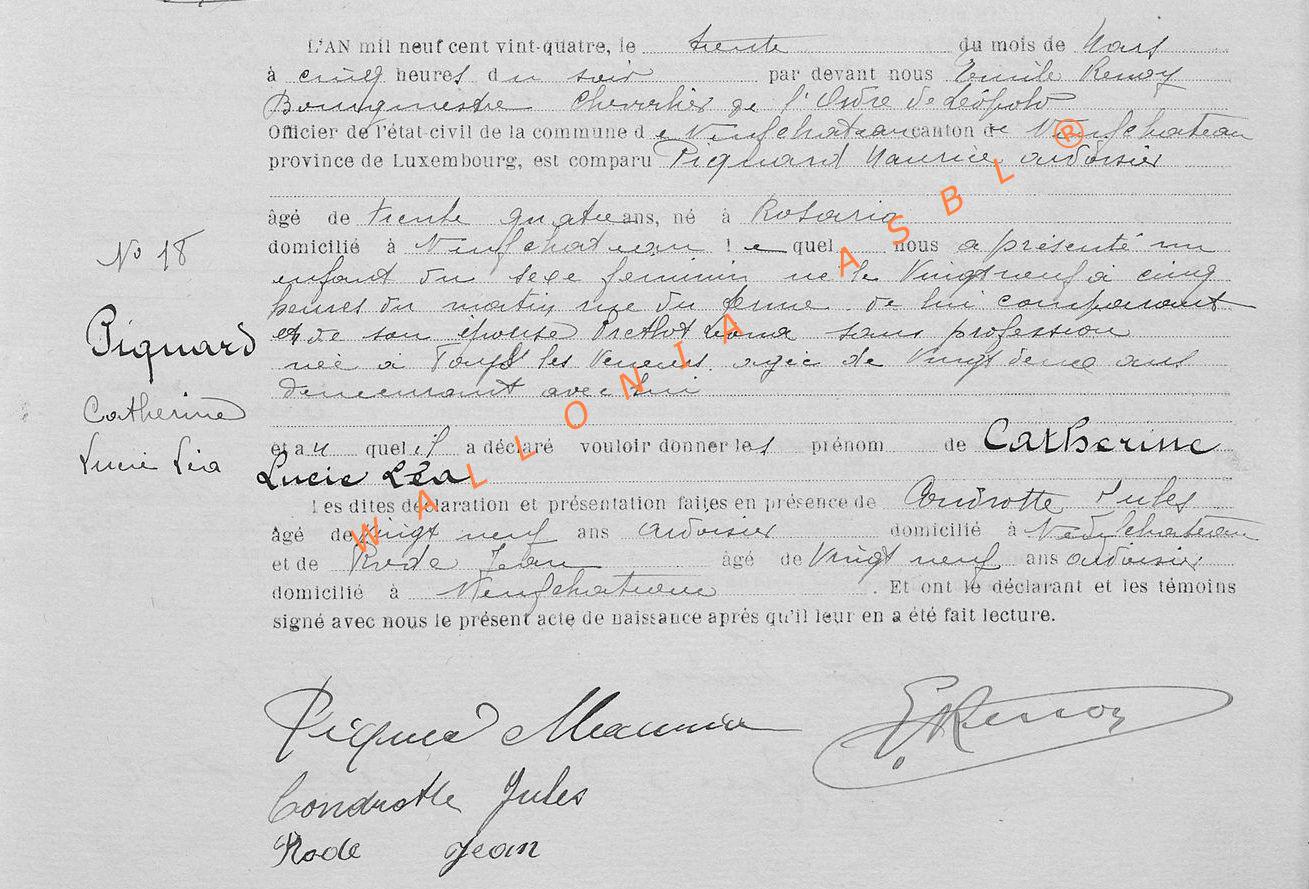 L'AN mil neuf cent vint-quatre, le trente du mois de Mars
à cinq heures du soir par devant nous Emile Renoy
Bourgmestre Chevalier de l'Ordre de Léopold
Officier de l'état-civil de la commune de Neufchateau canton de Neufchateau
province de Luxembourg, est comparu Pignard Maurice ardoisier
âgé de trente quatre ans, né à Rosario
domicilié à Neufchateau lequel nous a présenté un
No 18
enfant du sexe feminin né le Vingt neuf à cinq
heures du matin rue du de lui comparant
et de son épouse sans profession
Pignard
née à les agée de Vingt deux ans
demeurant avec lui
Catherine
et au quel il a déclaré vouloir donner les prénom de Catherine
Lucie Léa
Lucie Léa
Les dites déclaration et présentation faites en présence de Condrotte Jules
âgé de vingt neuf ans ardoisier domicilié à Neufchateau
et de Rode Jean âgé de Vingt neuf ans ardoisier
domicilié à Neufchateau. Et ont le déclarant et les témoins
signé avec nous le présent acte de naissance après qu'il leur en a été fait lecture.
Pignard Maurice E. Renoy
Condrotte Jules
Rode Jean
WALLONIA ASBL ®